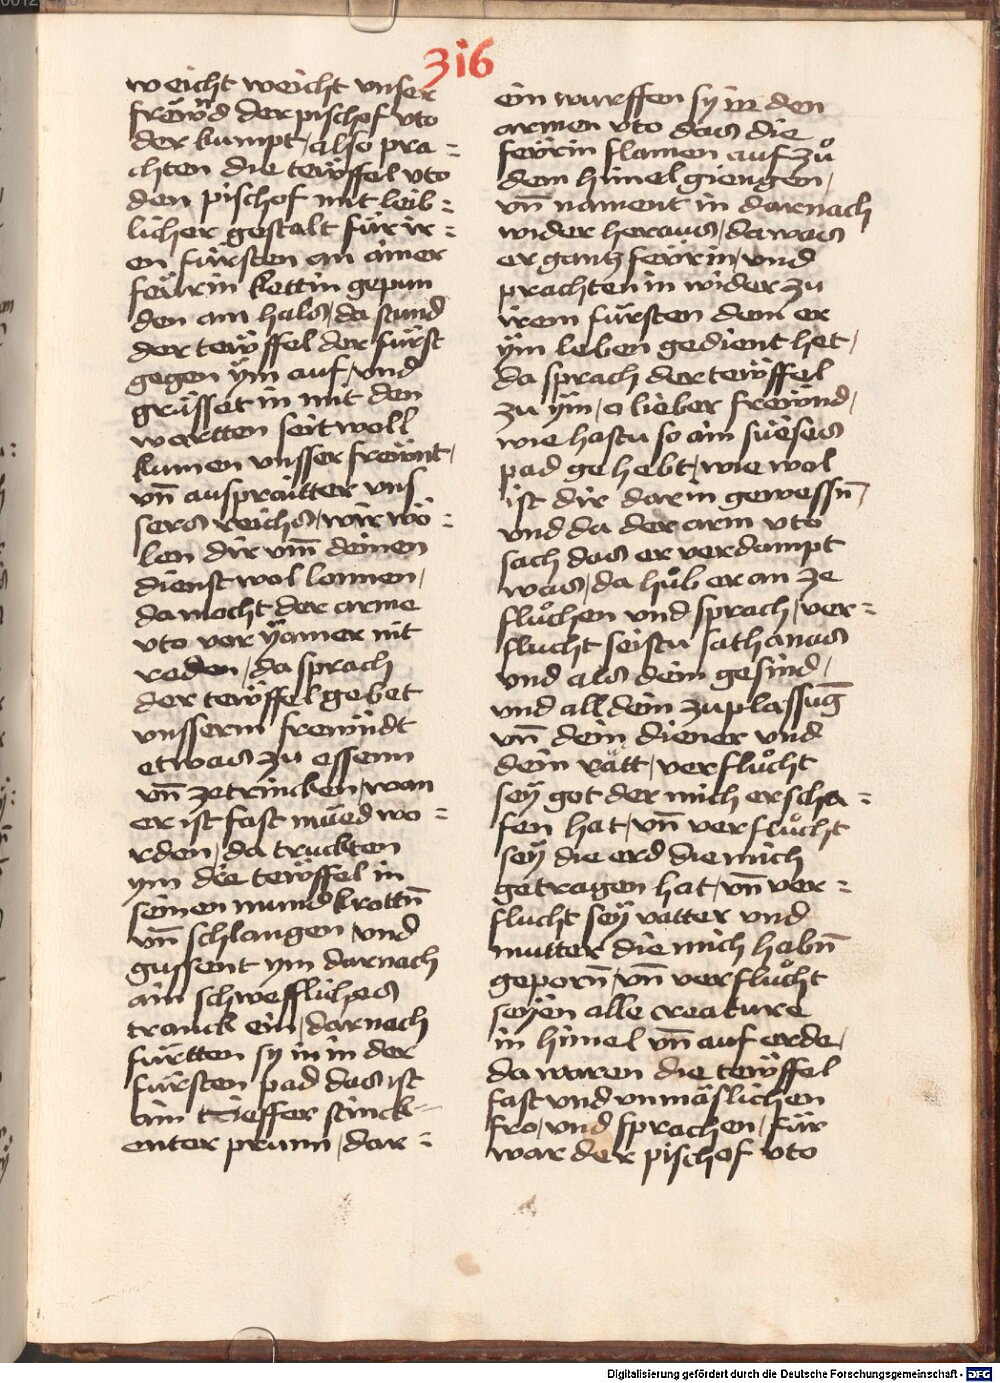 316
weicht weicht vnser
frewͤnd der pischof vto
der kumpt / also pra =
chten die tewͤffel vto
den pischof mit leib =
licher gestalt für ir =
en fürsten an ainer
fewrin kettin gepun
den am hals / da stund
der tewͤffel der fürst
gegen ÿm auf / vnd
grüsset in mit den
wartten seit woll
kumen vnsser frewͤnt /
vn̄ auspraitter vns
sers reichs / wir wö =
len dir vm̄ deinen
dienst wol lonnen /
da mocht der arme
vto vor ÿamer nit
reden / da sprach
der tewͤffel gebet
vnsserm frewͤndt
etwas zu essenn
vn̄ ze trincken / wan
er ist fast müed wo =
rden / da truckten
ym die tewͤffel in
seinen mund krottn̄
vn̄ schlangen / vnd
gussent ym darnach
ain schwefflichas
tranck ein / darnach
fürtten sy in in der
fürsten pad das ist
ain tieffer stinck =
enter prunn / dar =
ein wurffen sy in den
armen vto das die
fewrin flamen auf zů
dem himel giengen /
vn̄ nament in darnach
wider heraus / da was
er gantz fewrin / vnd
prachten in wider zu
irem fürsten dem er
ÿm leben gedient het /
da sprach der tewͤffel
zu ÿm / o lieber frewͤnd /
wie hastu so ain süeses
pad gehebt / wie wol
ist dir darin gewessn̄
vnd da der arm vto
sach das er verdampt
was / da hůb er an ze
flůchen vnd sprach / ver =
flucht seistu sathanas
vnd als dein gesind /
vnd all dein zuplassuḡ
vn̄ dein diener vnd
dein rätt / verflůcht
seÿ got der mich erscha =
fen hat / vn̄ verflůcht
seÿ die erd die mich
getragen hat / vn̄ ver =
flucht seÿ vatter vnd
mutter die mich habn̄
geporn̄ / vn̄ verflůcht
seÿen alle creature
in himel vn̄ auf erde /
da waren die tewͤffel
fast vnd vnmäslichen
fro / vnd sprachen / für
war der pischof vto
Digitalisierung gefördert durch die Deutsche Forschungsgemeinschaft - DFG